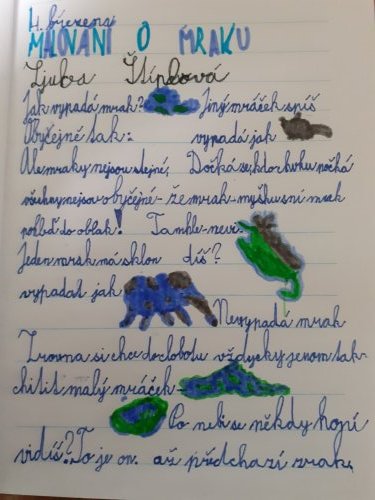 4. března
MALOVÁNÍ O MRAKU
Ljuba Štíplová
Jak vypadá mrak? Jiný mráček spíš
Obyčejně tak: vypadá jak
Ale mraky nejsou stejné, Dočká se, kdo chvilku počká
všechny nejsou obyčejné - že mrak-myšku sní mrak
pohleď do oblak! Tamhle - nevi-
Jeden mrak má sklon díš?
vypadat jak
Nevypadá mrak
Zrovna si chce do clobotu vždycky jenom tak
chitit malý mráček-
Po nebi se někdy honí
vidíš? To je on. až přechází zrak.